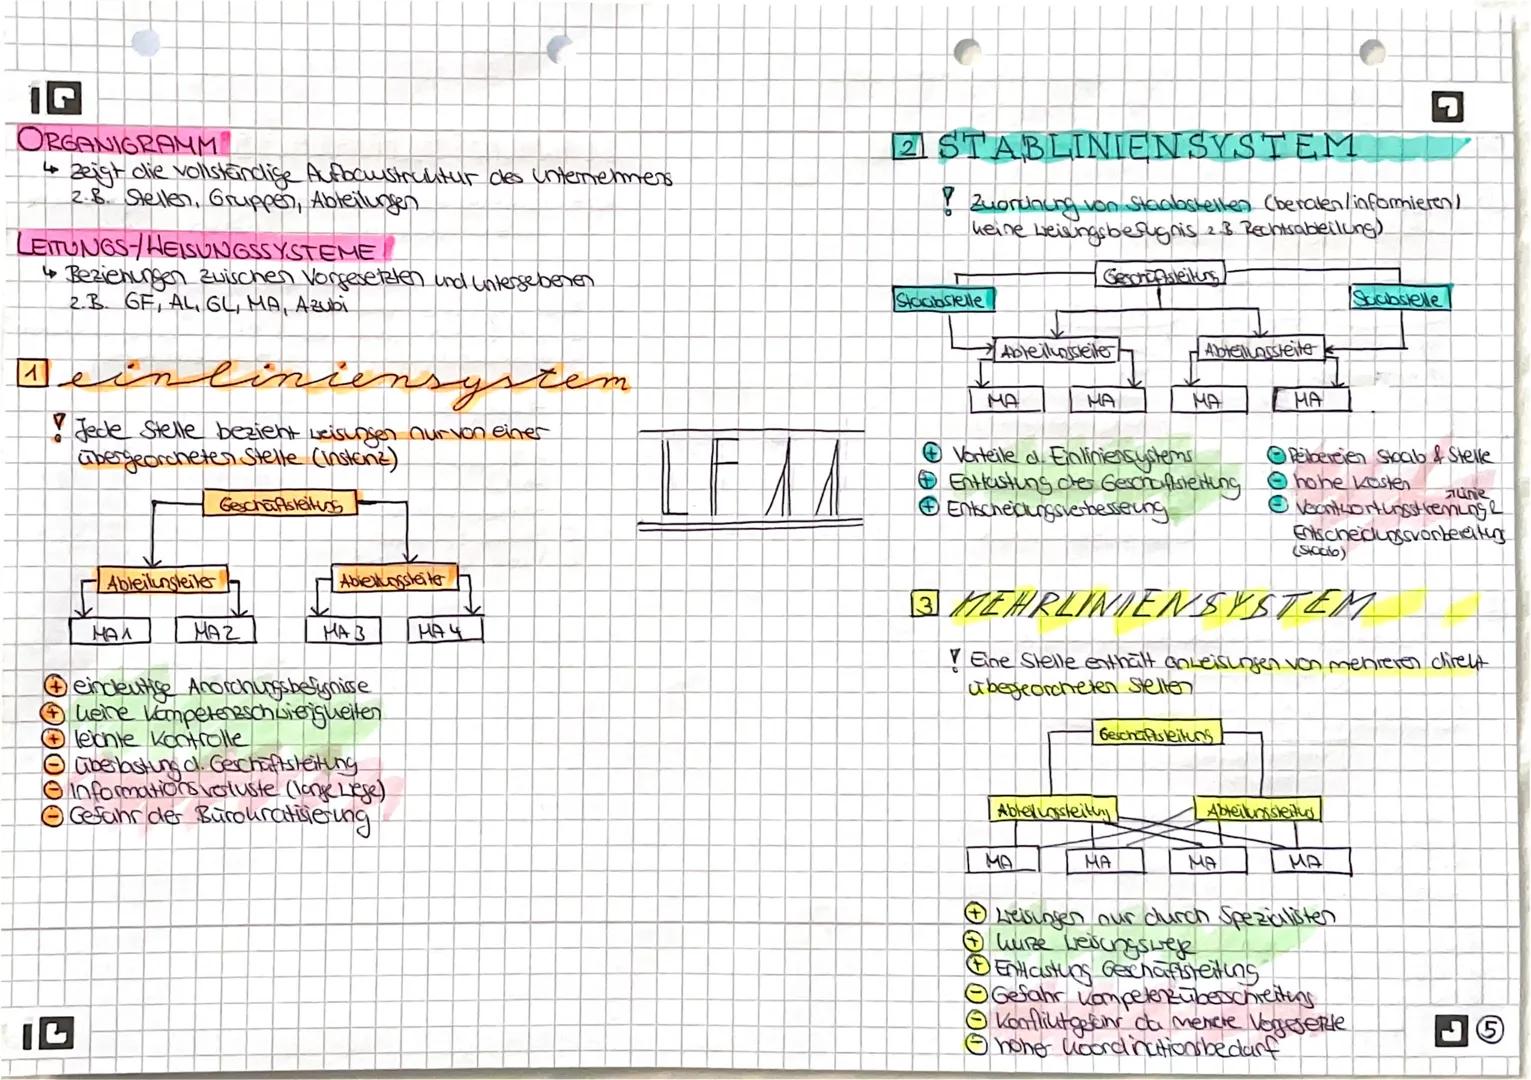 ORGANIGRAMM
↳ zeigt die vollständige Aufbaustruktur des Unternehmens
z.B. Stellen, Gruppen, Abteilungen
LEITUNGS-/WEISUNGSSYSTEME
↳ Beziehungen zwischen Vorgesetzten und untergebenen
z.B. GF, AL, GL, MA, Azubi
1 einliniensystem
! Jede Stelle bezieht weisungen nur von einer
übergeordneten Stelle (Instanz)
Geschäftsleitung
Abteilungsleiter Abteilungsleiter
MA1 MA2 MA3 MA4
+ eindeutige Anordnungsbefugnisse
+ keine Kompetenzschwierigkeiten
+ leichte Kontrolle
- überlastung d. Geschäftsleitung
- Informationsverluste (lange Wege)
- Gefahr der Bürokratisierung
LF 11
2 STABLINIENSYSTEM
! Zuordnung von Staabstellen (beraten/informieren)
keine weisungsbefugnis z.B. Rechtsabteilung)
Geschäftsleitung
Staabstelle Staabstelle
Abteilungsleiter Abteilungsleiter
MA MA MA MA
+ Vorteile d. Einliniensystems
+ Entlastung der Geschäftsleitung
+ Entscheidungsverbesserung
- Reibereien Staab & Stelle
- hohe Kosten
- Verantwortungstrennung &
Linie
Entscheidungsvorbereitung
(Staab)
3 MEHRLINIENSYSTEM
! Eine Stelle enthält anweisungen von mehreren direkt
übergeordneten Stellen
Geschäftsleitung
Abteilungsleitung Abteilungsleitung
MA MA MA MA
+ weisungen nur durch Spezialisten
+ kurze weisungswege
+ Entlastung Geschäftsleitung
- Gefahr Kompetenzüberschreitung
- Konfliktgefahr da mehrere Vorgesetzte
- hoher Koordinationsbedarf
5